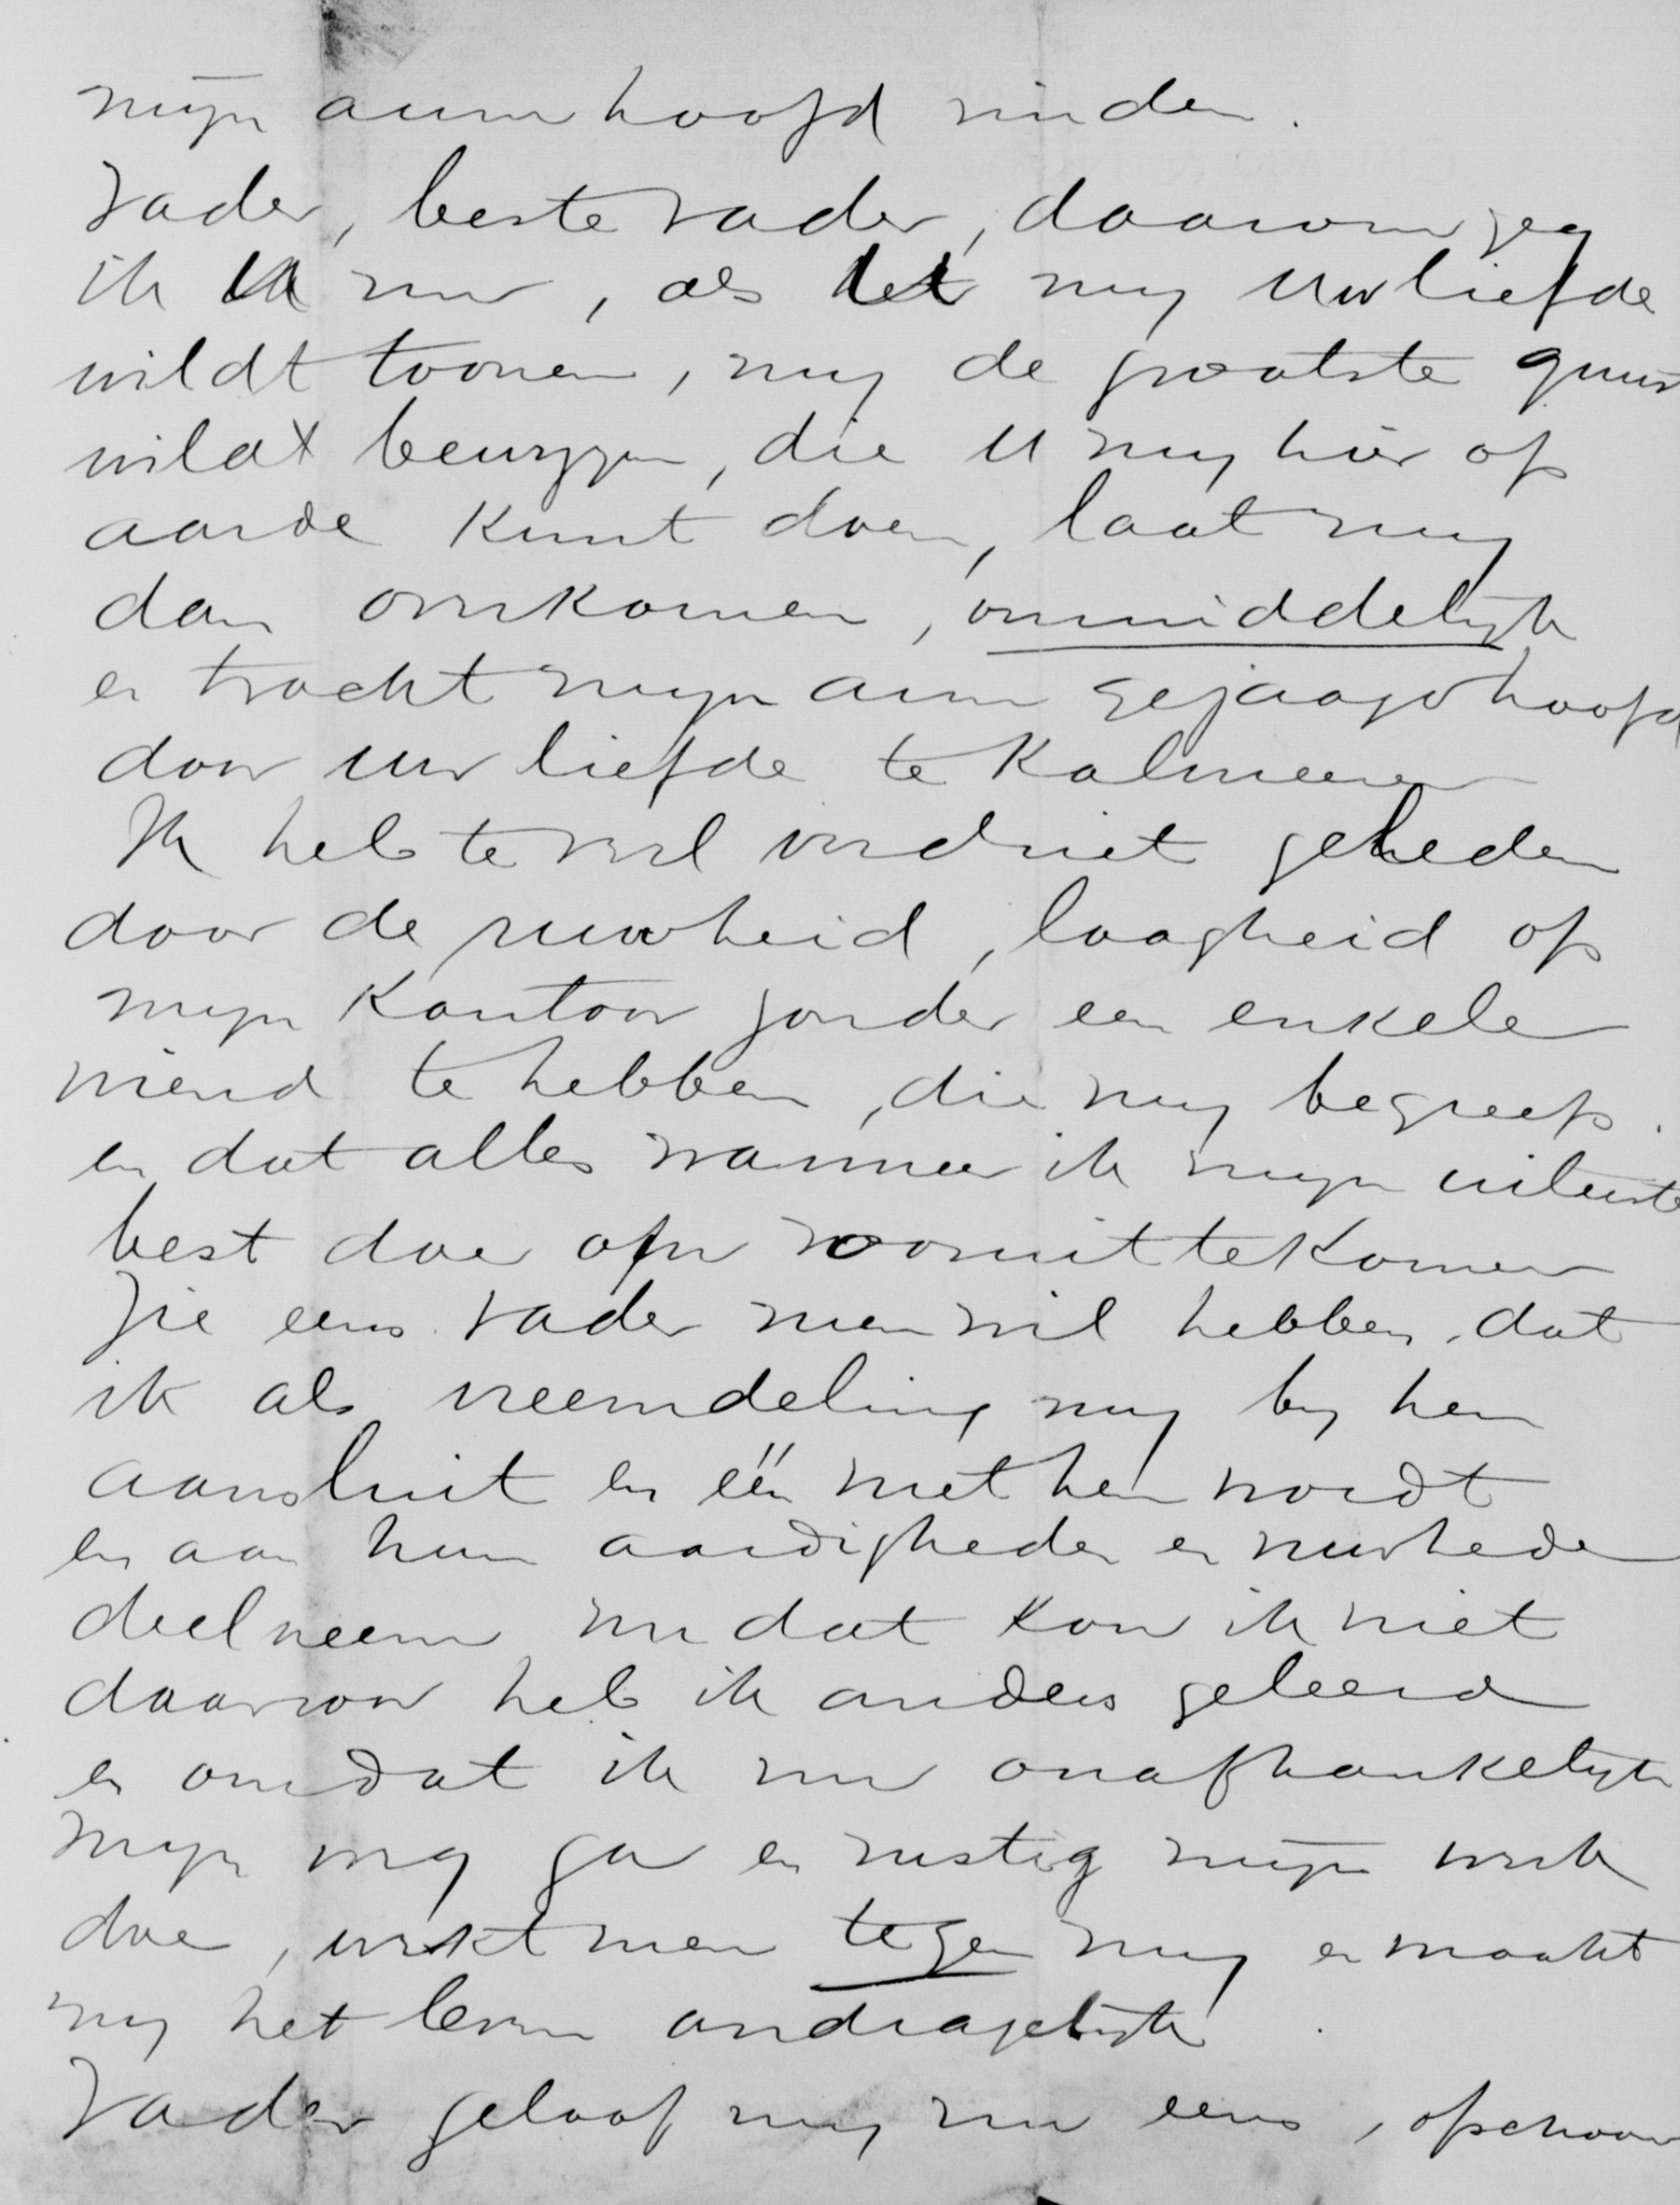 mijn arm hoofd vinden.
Vader, beste vader, daarom zeg
ik U nu, als U mij Uw liefde
wildt toonen, mij de grootste guns
wildt bewijzen, die U mij hier op
aarde kunt doen, laat mij
dan overkomen, onmiddelijk
en tracht mijn arm gejaagd hoofd
door uw liefde te kalmeeren
Ik heb te veel verdriet geleden
door de ruwheid, laagheid op
mijn kantoor zonder een enkele
vriend te hebben, die mij begreep.
en dat alles wanneer ik mijn uiterste
best doe om vooruit te komen
Zie eens vader men wil hebben, dat
ik als vreemdeling mij bij hen
aansluit en één met hen wordt
en aan hun aardigheden en ruwheden
deelneem nu dat kon ik niet
daarvoor heb ik anders geleerd
en omdat ik nu onafhankelijk
mijn weg ga en rustig mijn werk
doe, werkt men tegen mij en maakt
mij het leven ondragelijk.
Vader geloof mij nu eens, ofschoon